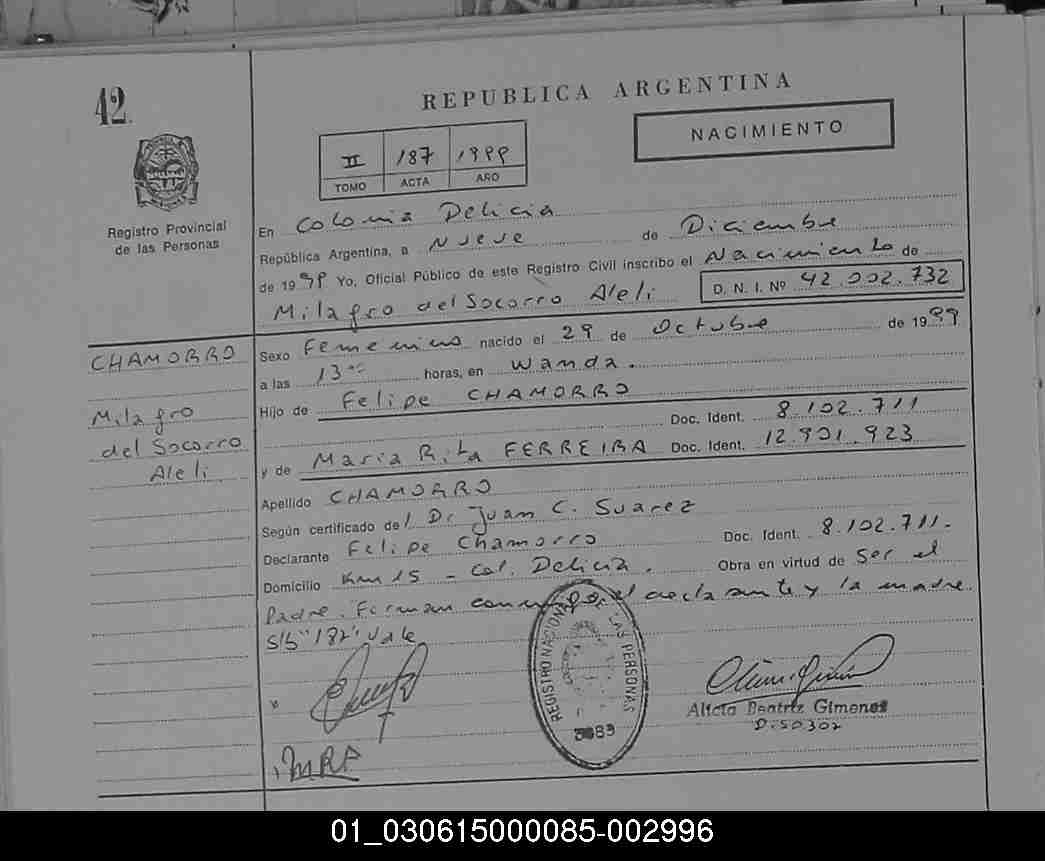 42.
REPUBLICA ARGENTINA
NACIMIENTO
II 187 1999
TOMO ACTA AÑO
Registro Provincial
de las Personas
En Colonia Delicia
República Argentina, a Nueve de Diciembre
de 1999 Yo, Oficial Público de este Registro Civil inscribo el Nacimiento de
Milagro del Socorro Aleli D. N. I. Nº 42.002.732
CHAMORRO
Milagro
del Socorro
Aleli
Sexo Femenino nacido el 29 de Octubre de 1999
a las 13 horas, en Wanda.
Hijo de Felipe CHAMORRO
Doc. Ident. 8.102.711
y de Maria Rita FERREIRA Doc. Ident. 12.901.923
Apellido CHAMORRO
Según certificado del Dr Juan C. Suarez
Declarante Felipe Chamorro Doc. Ident. 8.102.711.
Domicilio Km 15 - Col. Delicia. Obra en virtud de Ser el
Padre. Firman conmigo el declarante y la madre.
S/b "187" Vale
REGISTRO NACIONAL DE LAS PERSONAS
3089
Alicia Beatriz Gimenez
D.50302
MRF
01_030615000085-002996